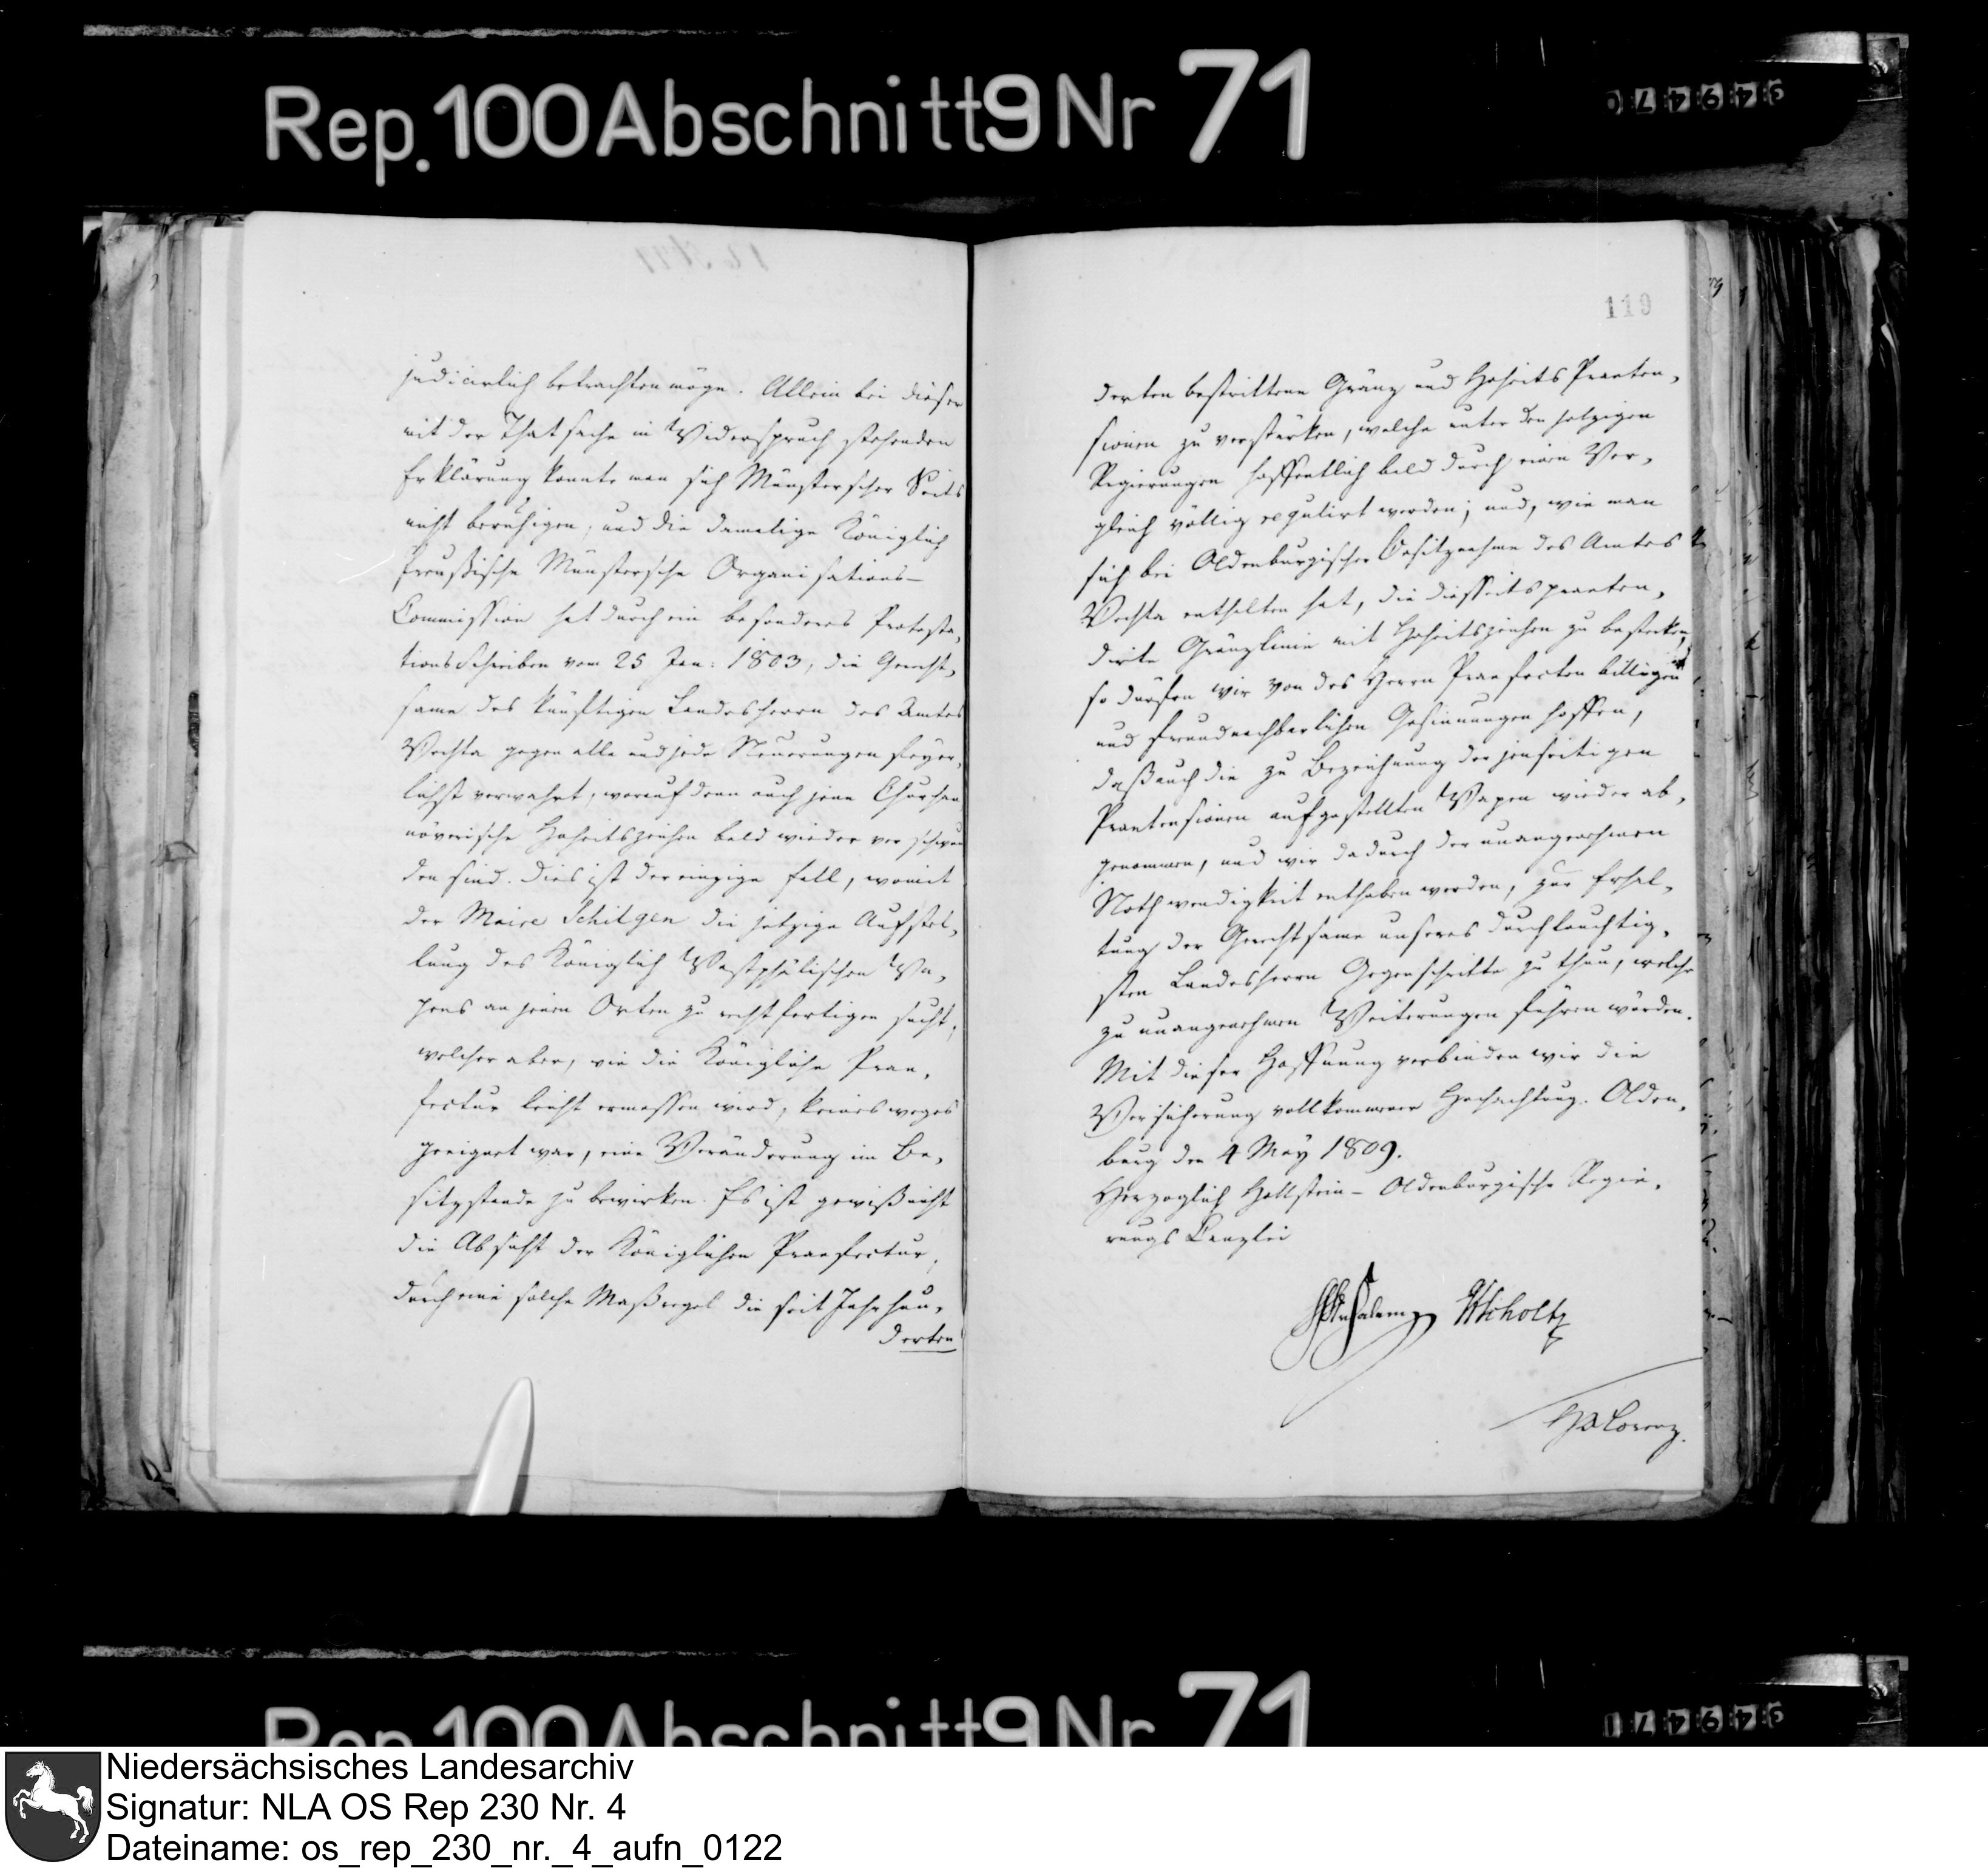 Rep. 100 Abschnitt 9 Nr 71
judicirlich betrachten möge. Allein bei dieser
mit der Thatsache in Widerspruch stehenden
Erklärung konnte man sich Münsterscher Seits
nicht beruhigen, und die damalige Königlich
Preußische Münstersche Organisations-
Commission hat durch ein besonderes Protesta,
tions Schreiben vom 25 Jan: 1803, die Gerecht,
same des künftigen Landesherrn des Amtes
Vechta gegen alle und jede Neuerungen feyer,
lichst verwahrt, worauf denn auch jene Churhan
növerische Hoheitszeichen bald wieder verschwun
den sind. Dies ist der einzige Fall, womit
der Maire Schilgen die jetzige Aufstel,
lung des Königlich Westphälischen Wa,
pens an jenen Orten zu rechtfertigen sucht,
welcher aber, wie die Königliche Prae,
fectur leicht ermessen wird, keinesweges
geeignet war, eine Veränderung im Be,
sitzstande zu bewirken. Es ist gewiß nicht
die Absicht der Königlichen Praefectur,
durch eine solche Maßregel die seit Jahrhun,
derten
119
derten bestrittene Gränz und Hoheits Praeten,
sionen zu verstärken, welche unter den jetzigen
Regierungen hoffentlich bald durch einen Ver,
gleich völlig regulirt werden; und, wie man
sich bei Oldenburgischer Besitznahme des Amtes
Vechta enthalten hat, die diesseits praeten,
dirte Gränzlinie mit Hoheitszeichen zu bestecken,
so dürfen wir von des Herrn Praefecten billigen
und freundnachbarlichen Gesinnungen hoffen,
daß auch die zu Bezeichnung der jenseitigen
Praetensionen aufgestellten Wapen wieder ab,
genommen, und wir dadurch der unangenehmen
Nothwendigkeit enthoben werden, zur Erhal,
tung der Gerechtsame unseres durchlauchtig,
sten Landesherrn Gegenschritte zu thun, welche
zu unangenehmen Weiterungen führen würden.
Mit dieser Hoffnung verbinden wir die
Versicherung vollkommener Hochachtung. Olden,
burg den 4 May 1809.
Herzoglich Hollstein-Oldenburgische Regie,
rungs Canzlei
Halem Scholtz
Lorenz.
Rep. 100 Abschnitt 9 Nr 71
Niedersächsisches Landesarchiv
Signatur: NLA OS Rep 230 Nr. 4
Dateiname: os_rep_230_nr._4_aufn_0122